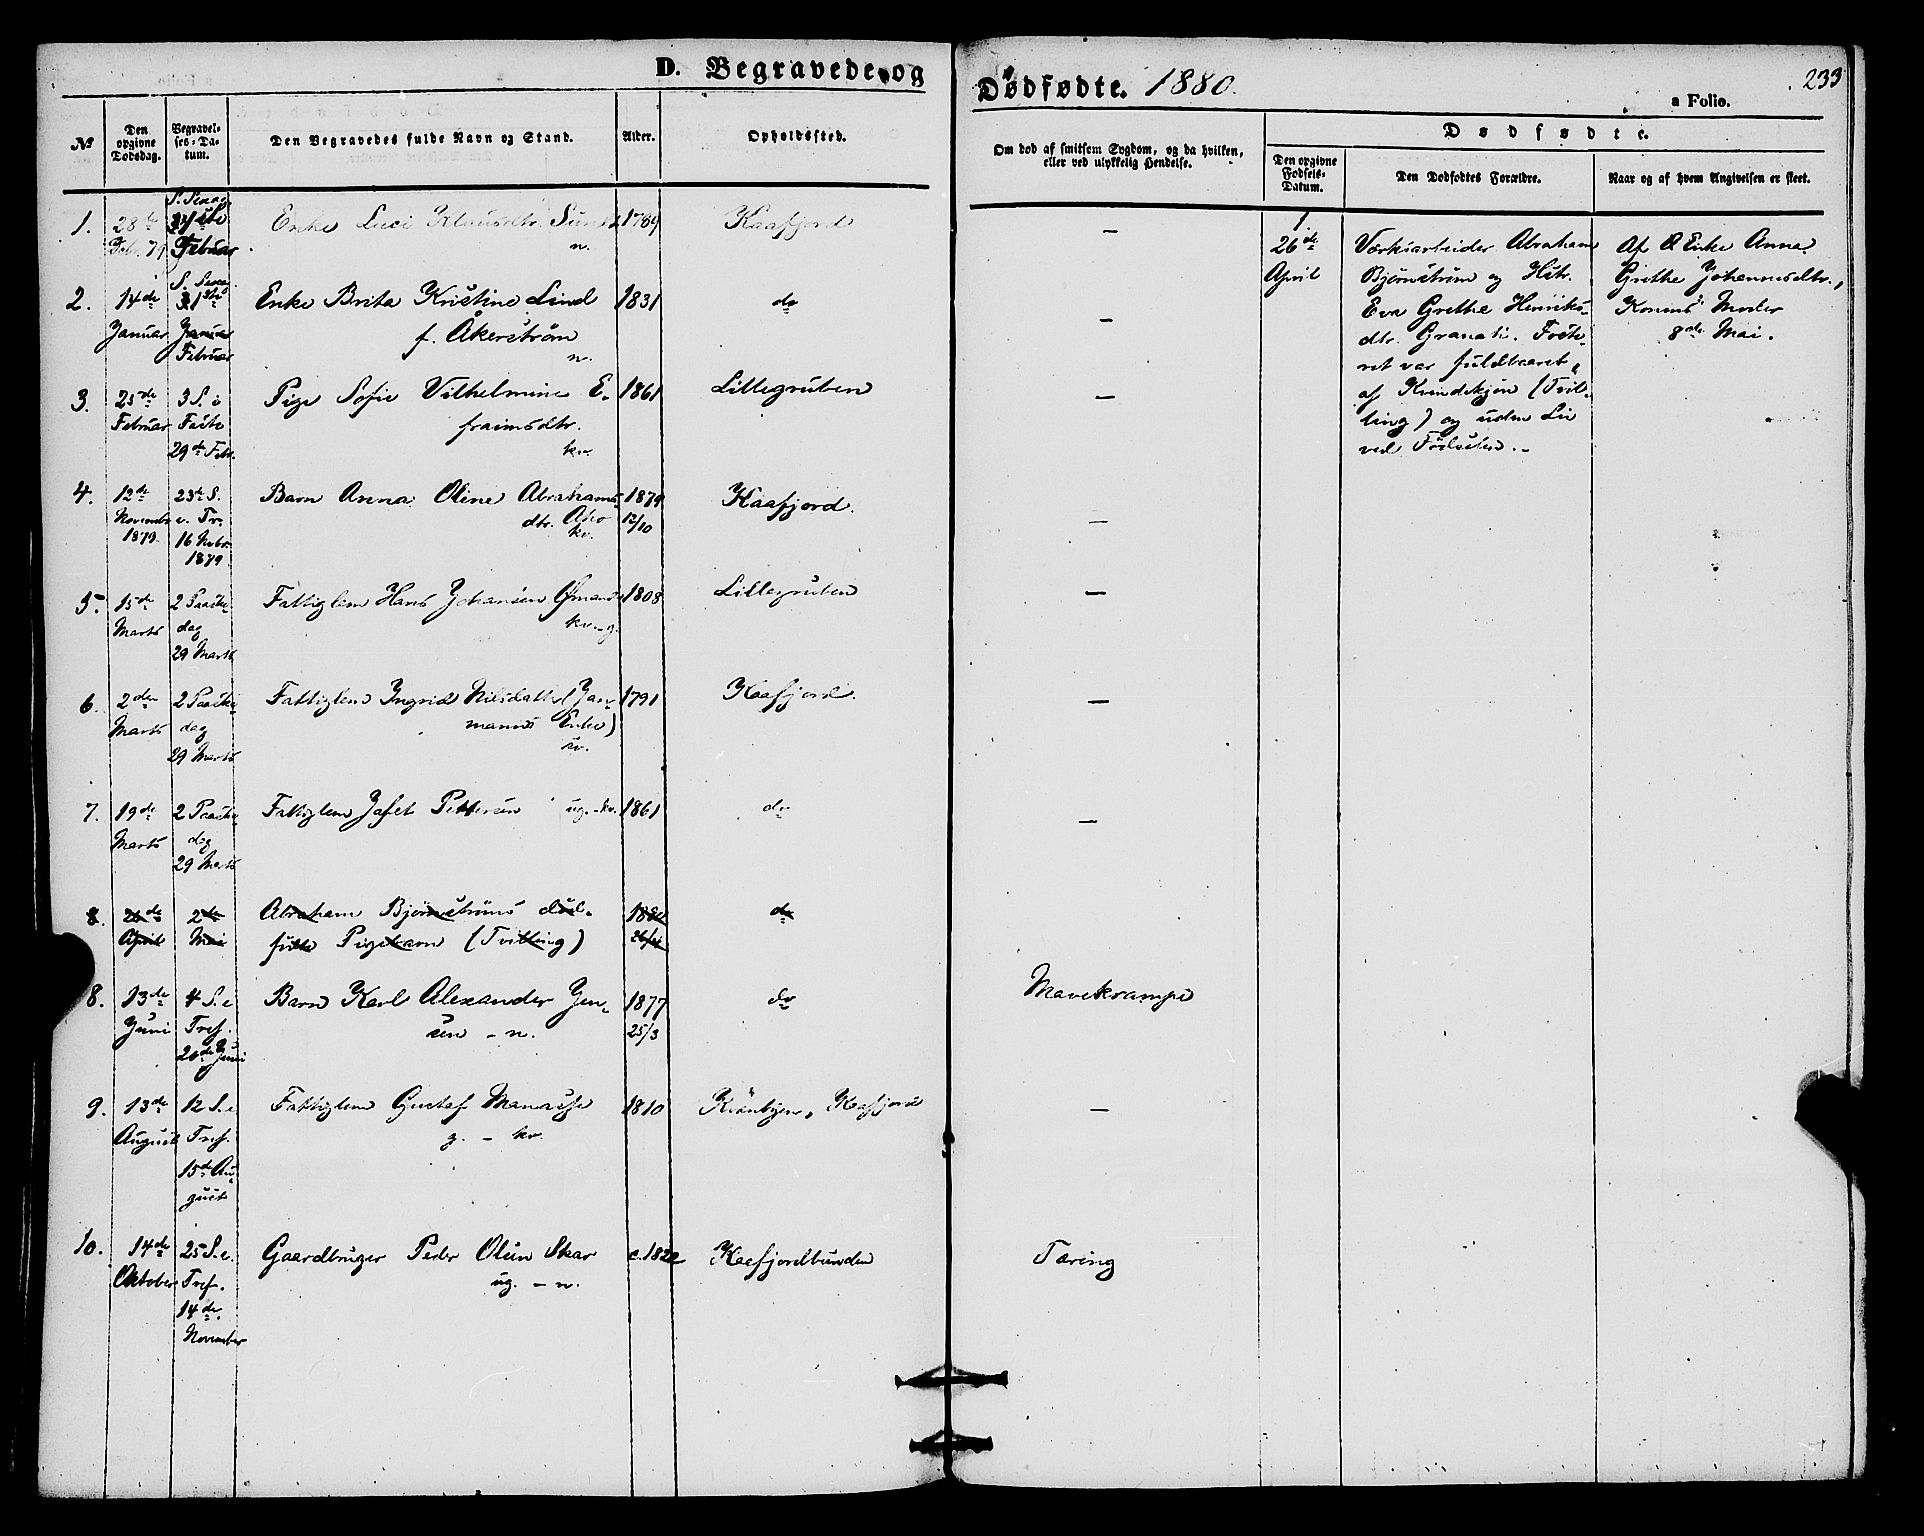 D. Begravede og Dødfødte. 1880.
233
a Folio.
No
Den opgivne Dødsdag.
Begravelses-Datum.
Den Begravedes fulde Navn og Stand.
Alder.
Opholdssted.
Om død af smitsom Sygdom, og da hvilken,
eller ved ulykkelig Hendelse.
Dødfødte.
Den opgivne Fødsels-Datum.
Den Dødfødtes Forældre.
Naar og af hvem Angivelsen er skeet.
1. 28de Febr. 79
Februar
Enke Luci Klausdtr.
n.
Kaafjord
—
2. 14de Januar
31te Januar
Februar
Enke Brita Kristine Lind
f. Åkerström
n.
1831
do
—
3. 25de Februar
3 S. i Faste
29de Febr.
Pige Sofie Vilhelmine E-
fraimsdtr.
kv.
1861
Lillegruben
—
4. 12te Novembr 1879.
23de S. e. Tr.
16 Nvbr. 1879.
Barn Anna Oline Abrahams-
dtr.
kv.
1879
12/10
Kaafjord.
—
5. 15de Marts
2 Paaskedag
29 Marts
Fattiglem Hans Johansen
kv. - g.
1808
Lillegruben
—
6. 2den Marts
2 Paaskedag
29 Marts
Fattiglem Ingrid Nilsdatter (Jan-
manns Enke)
kv.
1791
Kaafjord.
—
7. 19de Marts
2 Paaskedag
29 Marts
Fattiglem Jafet Pettersen ug. - kv.
1861
do
—
8. 26de April
2den Mai
Abraham Bjørnstrøms død-
fødte Pigebarn (Tvilling)
1880
26/4
do
8. 13de Juni
4 S. e. Tref.
20de Juni
Barn Karl Alexander Jen-
sen - n.
1877
25/3
do
Mavekrampe
9. 13de August
12 S. e. Tref.
15de August
Fattiglem Gustaf
g. - kv.
1810
Kvænbyen, Kaafjord
—
10. 14de Oktober
25 S. e. Tref.
14de November
Gaardbruger Peder Olsen Skar
ug. - n.
c. 1822
Kaafjordbunden
Tæring
1
26de
April
Værksarbeider Abraham
Bjørnstrøm og Hstr.
Eva Grethe Henriks-
dtr. Granati. Foste-
ret var fuldbaaret,
af Kvindekjøn (Tvil-
ling) og uden Liv
ved Fødselen. -
Af Enke Anna
Grethe Johannesdtr.,
Konens Moder
8de Mai.